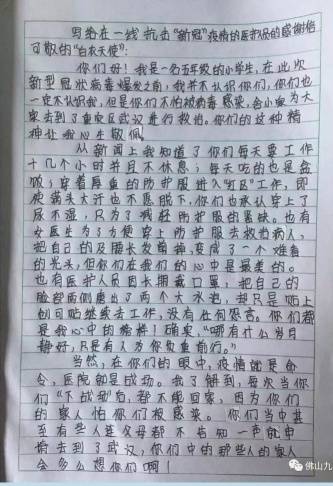 写给在一线抗击“新冠”疫情的医护员的感谢信
可敬的“白衣天使”:
你们好!我是一名五年级的小学生,在此次
新型冠状病毒爆发之前,我并不认识你们,你们也
一定不认识我,但是你们不怕被病毒感染,舍小家为大
家去到了重灾区武汉进行救治。你们的这种精
神让我心生敬佩。
从新闻上我知道了你们每天要工作
十几个小时并且不休息;每天吃的也是盒
饭;穿着厚重的防护服进入“红区”工作,即
使满头大汗也不愿脱下,你们也承认穿上了
尿不湿,只为了减轻防护服的紧缺。也有
女医生为了方便穿上防护服去救治病人,
把自己的及腰长发剪掉,变成了一个难看
的光头,但你们在我们的心中是最美的。
也有医护人员因长期戴口罩,把自己的
脸部两侧磨出了两个大水泡,却只是贴上
创可贴继续去工作,没有任何怨言。你们都
是我心中的榜样!确实,“哪有什么岁月
静好,只是有人为你负重前行。”
当然,在你们的眼中,疫情就是命
令,医院即是战场。我了解到,每次当你
们“下战场”后,都不能回家,因为你们
的家人怕你们被感染。你们当中甚
至有些人连父母都不告知一声就申
请去到了武汉,你们中的那些人的家人
会多么想你们啊!
佛山九